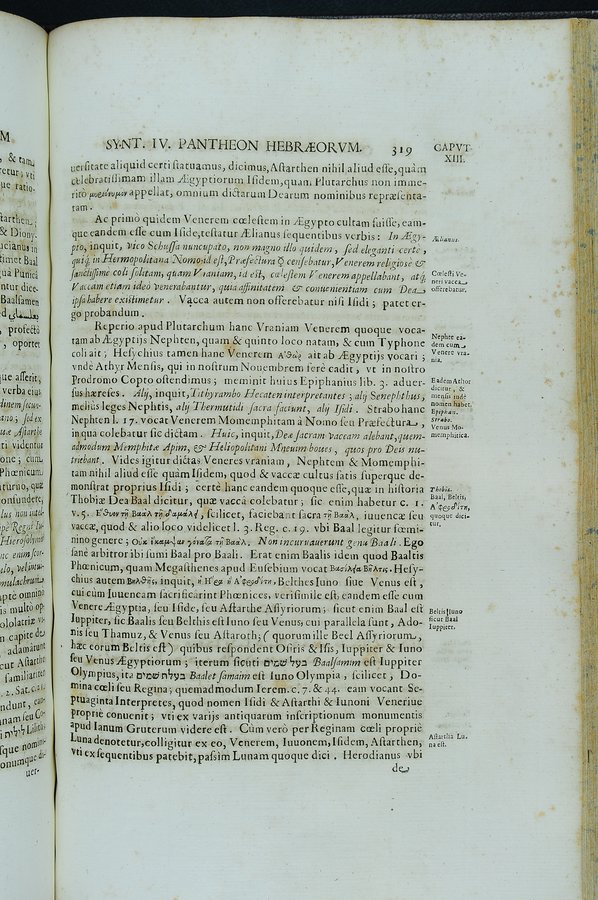 SYNT. IV. PANTHEON HEBRÆORVM. 319 CAPVT XIII.
uersitate aliquid certi statuamus, dicimus, Astarthen nihil aliud esse, quàm
celebratissimam illam Ægyptiorum Isidem, quam Plutarchus non imme-
ritò appellat, omnium dictarum Dearum nominibus repræsenta-
tam.
Ac primò quidem Venerem cœlestem in Ægypto cultam fuisse, eam-
que eandem esse cum Iside, testatur Ælianus sequentibus verbis: In Ægy-
pto, inquit, vico Schussa nuncupato, non magno illo quidem, sed eleganti certè,
quiq; in Hermopolitana Nomo id est, Præfectura censebatur, Venerem religiosè &
sanctissimè coli solitam, quam Vraniam, id est, cœlestem Venerem appellabant, atq;
Vaccam etiam ideò venerabantur, quia affinitatem & conuenientiam cum Dea
ipsa habere existimetur. Vacca autem non offerebatur nisi Isidi; patet er-
go probandum.
Reperio apud Plutarchum hanc Vraniam Venerem quoque voca-
tam ab Ægyptijs Nephten, quam & quinto loco natam, & cum Typhone
coli ait; Hesychius tamen hanc Venerem ait ab Ægyptijs vocari;
vndè Athyr Mensis, qui in nostrum Nouembrem ferè cadit, vt in nostro
Prodromo Copto ostendimus; meminit huius Epiphanius lib. 3. aduer-
sus hæreses. Alij, inquit, Tithrambo Hecaten interpretantes; alij Senephthus,
meliùs leges Nephtis, alij Thermutidi sacra faciunt, alij Isidi. Strabo hanc
Nephten l. 17. vocat Venerem Momemphitam à Nomo seu Præfectura,
in qua colebatur sic dictam. Huic, inquit, Deæ sacram vaccam alebant, quem-
admodum Memphitæ Apim, & Heliopolitani Mneuim boues, quos pro Deis nu-
trebant. Vides igitur dictas Veneres vraniam, Nephtem & Momemphi-
tam nihil aliud esse quàm Isidem, quod & vaccæ cultus satis superque de-
monstrat proprius Isidi; certè hanc eandem quoque esse, quæ in historia
Thobiæ Dea Baal dicitur, quæ vacca colebatur; sic enim habetur c. 1.
v. 5. scilicet, faciebant sacra τῇ Βαὰλ, iuuencæ seu
vaccæ, quod & alio loco videlicet l. 3. Reg. c. 19. vbi Baal legitur fœmi-
nino genere; Non incuruauerunt genu Baali. Ego
sanè arbitror ibi sumi Baal pro Baali. Erat enim Baalis idem quod Baaltis
Phœnicum, quam Megasthenes apud Eusebium vocat Hesy-
chius autem inquit, Belthes Iuno siue Venus est,
cui cum Iuuencam sacrificarint Phœnices, verisimile est, eandem esse cum
Venere Ægyptia, seu Iside, seu Astarthe Assyriorum; sicut enim Baal est
Iuppiter, sic Baalis seu Belthis est Iuno seu Venus; cui parallela sunt, Ado-
nis seu Thamuz, & Venus seu Astaroth; (quorum ille Beel Assyriorum,
hæc eorum Beltis est) quibus respondent Osiris & Isis, Iuppiter & Iuno
seu Venus Ægyptiorum; iterum sicuti בעל שמים Baalsamim est Iuppiter
Olympius, ita בעלת שמים Baalet samaim est Iuno Olympia, scilicet, Do-
mina cœli seu Regina; quemadmodum Ierem. c. 7. & 44. eam vocant Se-
ptuaginta Interpretes, quod nomen Isidi & Astarthi & Iunoni Veneriue
propriè conuenit; vti ex varijs antiquarum inscriptionum monumentis
apud Ianum Gruterum videre est. Cùm verò per Reginam cœli propriè
Luna denotetur, colligitur ex eo, Venerem, Iunonem, Isidem, Astarthen,
vti ex sequentibus patebit, passim Lunam quoque dici. Herodianus vbi
de
Ælianus.
Cœlesti Ve-
neri vacca
offerebatur.
Nephte ea-
dem cum
Venere vra-
nia.
Eadem Athor
dicitur, &
mensis indè
nomen habet.
Epiphan.
Strabo.
Venus Mo-
memphitica.
Thobia.
Baal, Beltis,
quoque dici-
tur.
Beltis Iuno
sicut Baal
Iuppiter.
Astartha Lu-
na est.